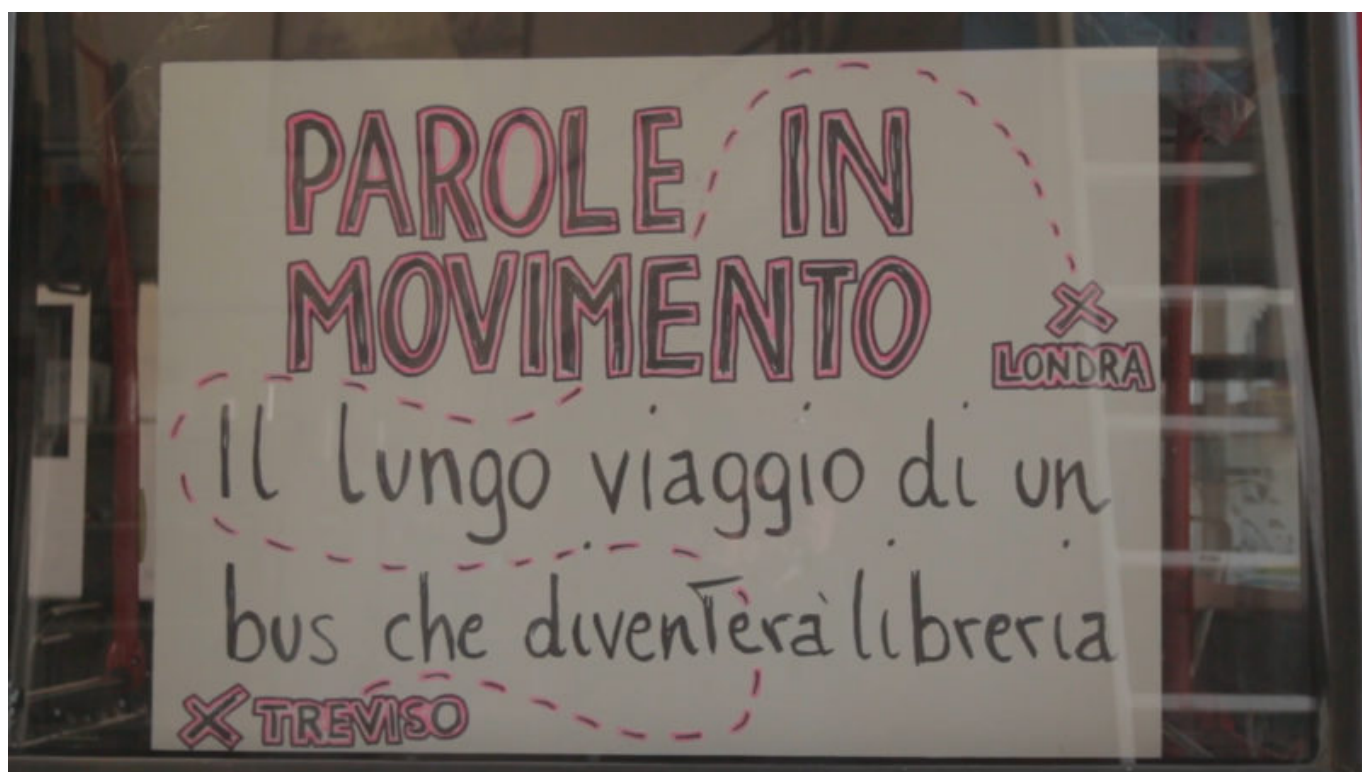 PAROLE IN
MOVIMENTO
LONDRA
Il lungo viaggio di un
bus che diventerà libreria
TREVISO